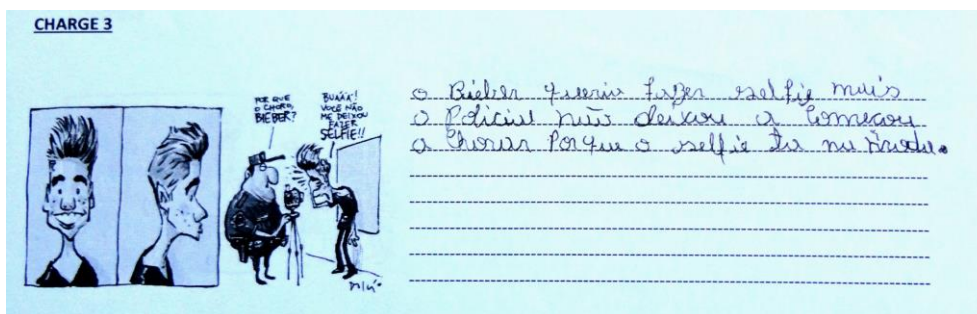 CHARGE 3
POR QUE
O CHORO,
BIEBER?
BUÁÁÁ!
VOCÊ NÃO
ME DEIXOU
FAZER
SELFIE!!
o Bieber queria fazer selfie mais
o Policial não deixou a começou
a chorar Porque o selfie na